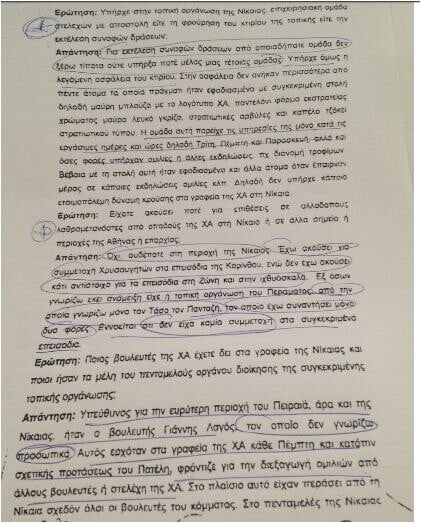 Ερώτηση: Υπήρχε στην τοπική οργάνωση της Νίκαιας, επιχειρησιακή ομάδα
στελεχών με αποστολή είτε τη φρούρηση του κτιρίου της τοπικής είτε την
εκτέλεση συναφών δράσεων;
Απάντηση: Για εκτέλεση συναφών δράσεων από οποιαδήποτε ομάδα δεν
ξέρω τίποτα ούτε υπήρξα ποτέ μέλος μιας τέτοιας ομάδας. Υπήρχε όμως η
λεγόμενη ασφάλεια του κτιρίου. Στην ασφάλεια δεν ανήκαν περισσότερα από
πέντε άτομα τα οποία πράγματι ήταν εφοδιασμένα με συγκεκριμένη στολή
δηλαδή μαύρη μπλούζα με το λογότυπο ΧΑ, παντελόνι φόρμα εκστρατείας
χρώματος μαύρο λευκό γκρίζο, στρατιωτικές αρβύλες και καπέλο τζόκεϊ
στρατιωτικού τύπου. Η ομάδα αυτή παρείχε τις υπηρεσίες της μόνο κατά τις
εργάσιμες ημέρες και ώρες δηλαδή Τρίτη, Πέμπτη και Παρασκευή, αλλά και
όσες φορές υπήρχαν ομιλίες ή άλλες εκδηλώσεις, πχ διανομή τροφίμων.
Βέβαια με τη στολή αυτή ήταν εφοδιασμένα και άλλα άτομα όταν έπαιρναν
μέρος σε κάποιες εκδηλώσεις ομιλίες κλπ. Δηλαδή δεν υπήρχε κάποια
ετοιμοπόλεμη δύναμη κρούσης στα γραφεία της ΧΑ στη Νίκαια.
Ερώτηση: Είχατε ακούσει ποτέ για επιθέσεις σε αλλοδαπούς
λαθρομετανάστες από οπαδούς της ΧΑ στη Νίκαια ή σε άλλα σημεία ή
περιοχές της Αθήνας ή επαρχίας;
Απάντηση: Όχι, ουδέποτε στη περιοχή της Νίκαιας. Έχω ακούσει για
συμμετοχή Χρυσαυγητών στα επεισόδια της Κορίνθου, ενώ δεν έχω ακούσει
κάτι αντίστοιχο για τα επεισόδια στη Ζώνη και στην ιχθυόσκαλα. Εξ όσων
γνωρίζω εκεί ανάμειξη είχε η τοπική οργάνωση του Περάματος, από την
οποία γνωρίζω μόνο τον Τάσο τον Πανταζή, τον οποίο έχω συναντήσει μόνο
δυο φορές. Εννοείται ότι δεν είχα καμία συμμετοχή στα συγκεκριμένα
επεισόδια.
Ερώτηση: Ποιος βουλευτές της ΧΑ έχετε δει στα γραφεία της Νίκαιας και
ποιοι ήσαν τα μέλη του πενταμελούς οργάνου διοίκησης της συγκεκριμένης
τοπικής οργάνωσης;
Απάντηση: Υπεύθυνος για την ευρύτερη περιοχή του Πειραιά, άρα και της
Νίκαιας, ήταν ο βουλευτής Γιάννης Λαγός, τον οποίο δεν γνωρίζω
προσωπικά. Αυτός ερχόταν στα γραφεία της ΧΑ κάθε Πέμπτη και κατόπιν
σχετικής προτάσεως του Πατέλη, φρόντιζε για την διεξαγωγή ομιλιών από
άλλους βουλευτές ή στελέχη της ΧΑ. Στο πλαίσιο αυτό είχαν περάσει από τη
Νίκαια σχεδόν όλοι οι βουλευτές του κόμματος. Στο πενταμελές της Νίκαιας